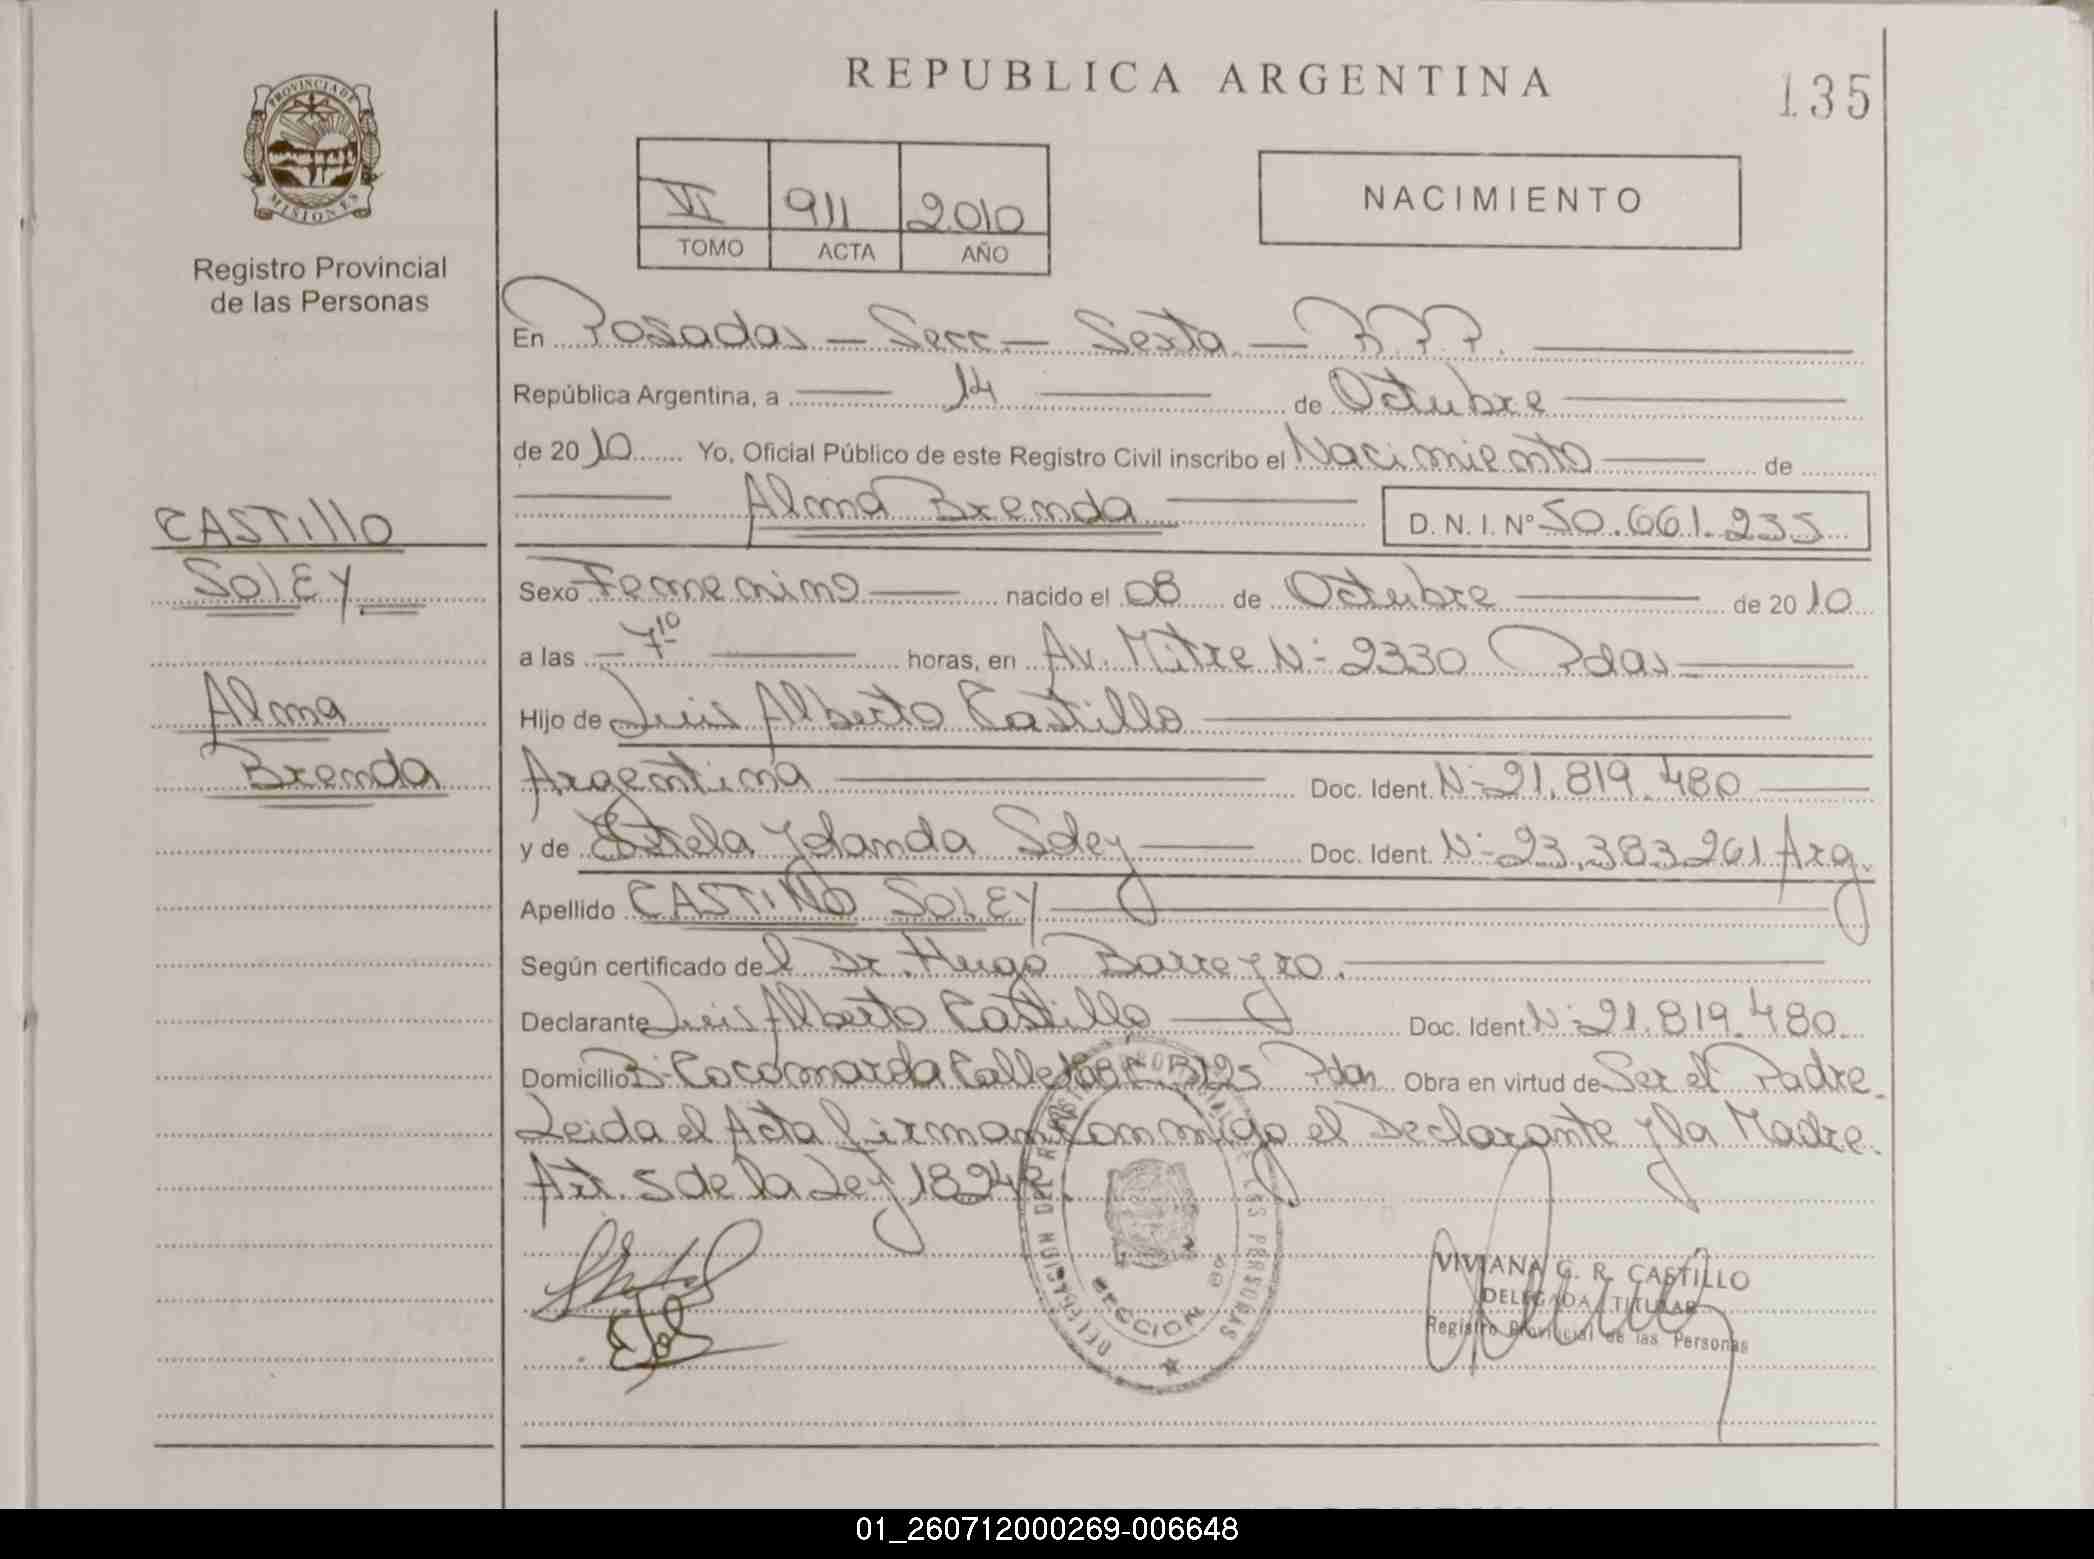 REPUBLICA ARGENTINA
135
PROVINCIA DE
MISIONES
Registro Provincial
de las Personas
VI 911 2010
TOMO ACTA AÑO
NACIMIENTO
En Posadas — Secc — Sexta — R.P.P.
República Argentina, a 14 de Octubre
de 2010 Yo, Oficial Público de este Registro Civil inscribo el Nacimiento de
Alma Brenda D.N.I. Nº 50.661.235
CASTillO
SOLEY
Alma
Brenda
Sexo Femenino nacido el 08 de Octubre de 2010
a las 7¹⁰ horas, en Av. Mitre Nº 2330 Pdas
Hijo de Luis Alberto Castillo
Argentina Doc. Ident. Nº 21.819.480
y de Estela Yolanda Soley Doc. Ident. Nº 23.383.261 Arg.
Apellido CASTillO SOLEY
Según certificado del Dr. Hugo Barreyro.
Declarante Luis Alberto Castillo Doc. Ident. Nº 21.819.480
Domicilio Bº Cocomarola Calle Pdas Obra en virtud de Ser el Padre.
Leida el Acta firman Conmigo el Declarante y la Madre.
Art. 5 de la Ley 18248.
DELEGACION DEL REGISTRO PROVINCIAL DE LAS PERSONAS
SECCION 6ª
VIVIANA G. R. CASTILLO
DELEGADA TITULAR
Registro Provincial de las Personas
01_260712000269-006648